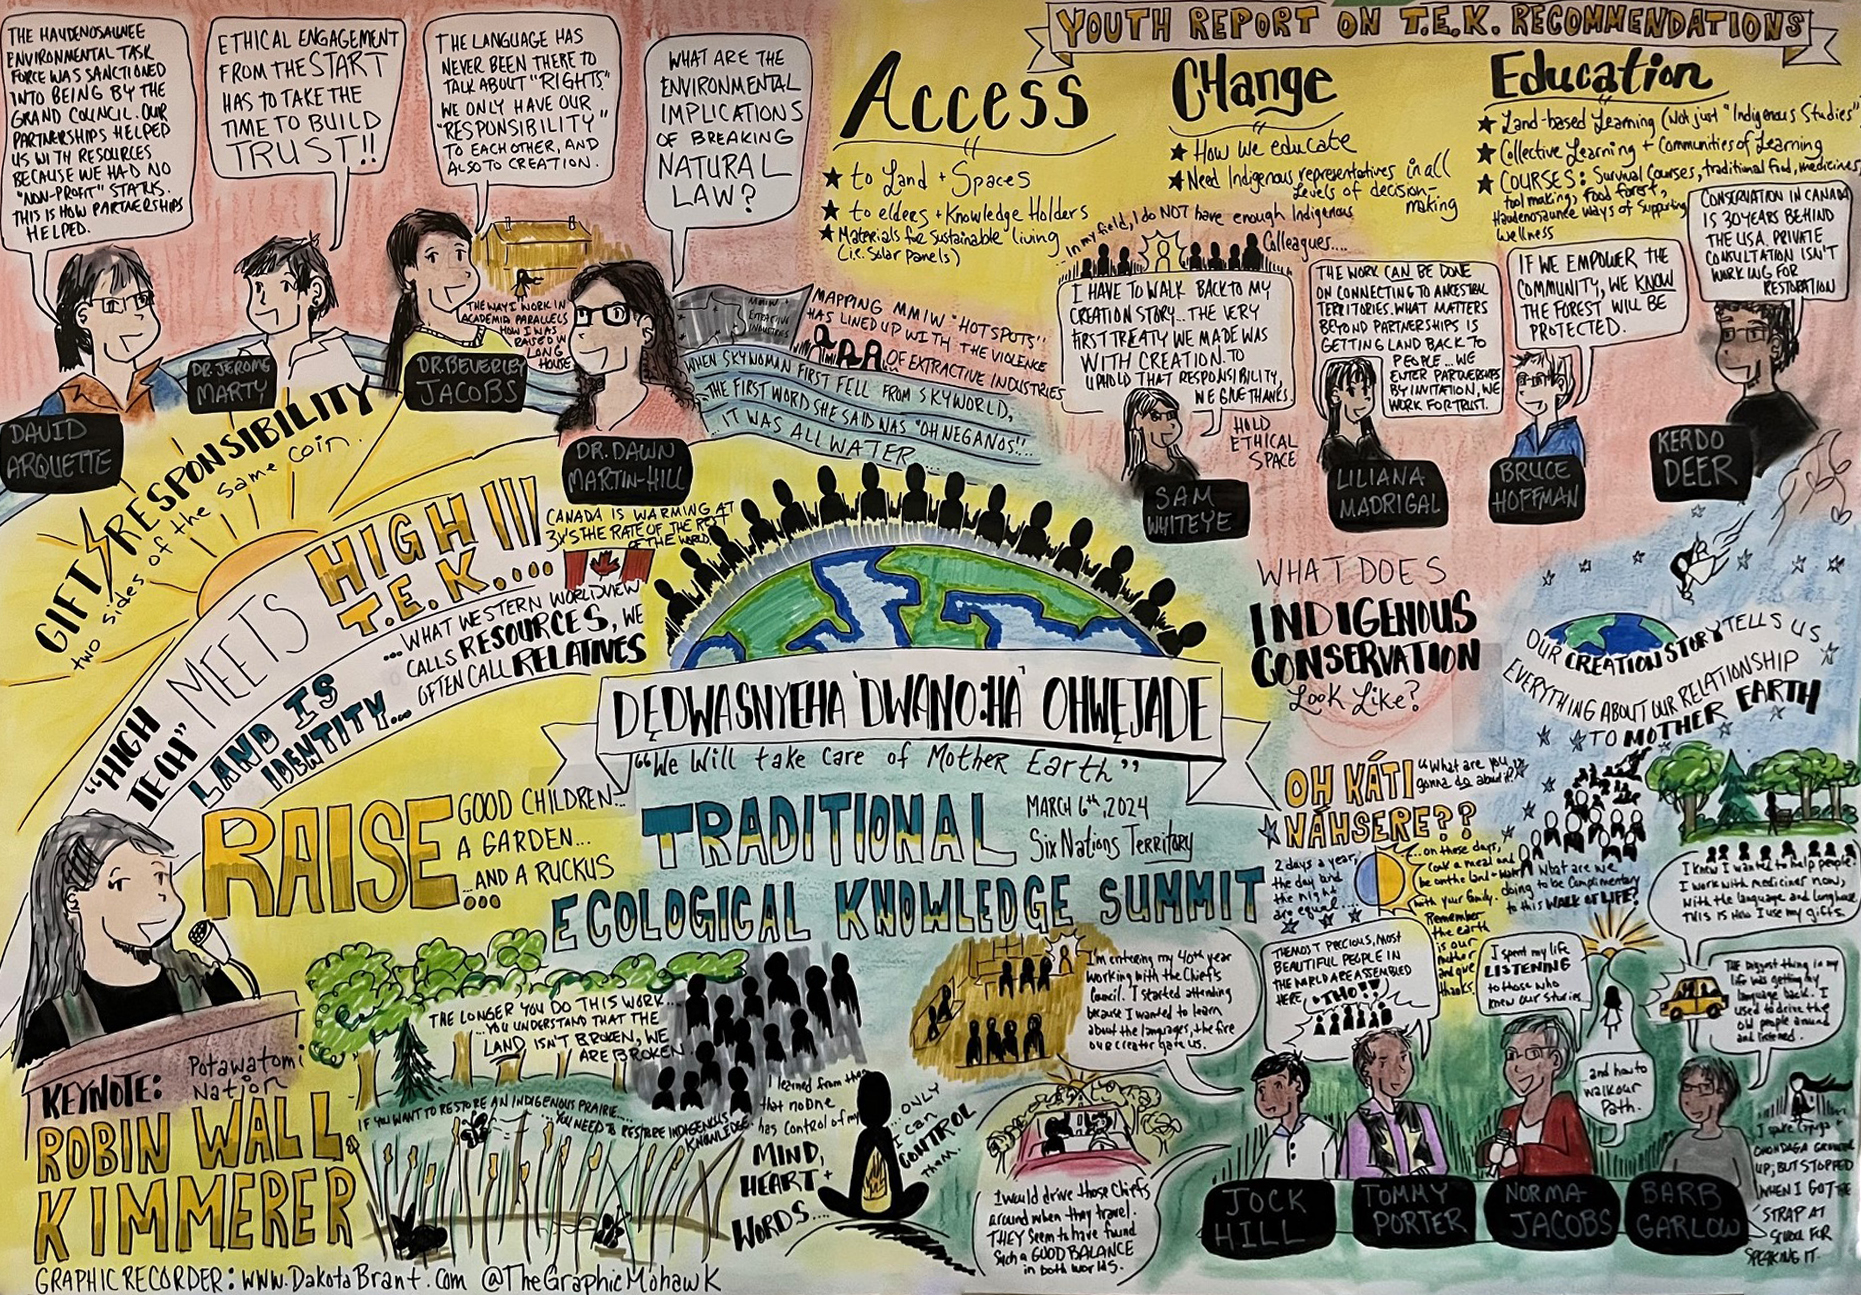 THE HAUDENOSAUNEE
ENVIRONMENTAL TASK
FORCE WAS SANCTIONED
INTO BEING BY THE
GRAND COUNCIL. OUR
PARTNERSHIPS HELPED
US WITH RESOURCES
BECAUSE WE HAD NO
"NON-PROFIT" STATUS.
THIS IS HOW PARTNERSHIPS
HELPED.
DAVID
ARQUETTE
ETHICAL ENGAGEMENT
FROM THE START
HAS TO TAKE THE
TIME TO BUILD
TRUST!!
DR. JEROME
MARTY
THE LANGUAGE HAS
NEVER BEEN THERE TO
TALK ABOUT "RIGHTS".
WE ONLY HAVE OUR
"RESPONSIBILITY"
TO EACH OTHER, AND
ALSO TO CREATION.
DR. BEVERLEY
JACOBS
THE WAY I WORK IN
ACADEMIA PARALLELS
HOW I WAS
RAISED IN
LONG
HOUSE
WHAT ARE THE
ENVIRONMENTAL
IMPLICATIONS
OF BREAKING
NATURAL
LAW?
DR. DAWN
MARTIN-HILL
MMIW +
EXTRACTIVE
INDUSTRIES
MAPPING MMIW "HOTSPOTS"
HAS LINED UP WITH THE VIOLENCE
OF EXTRACTIVE INDUSTRIES
WHEN SKYWOMAN FIRST FELL FROM SKYWORLD,
THE FIRST WORD SHE SAID WAS "OHNEGANOS"...
IT WAS ALL WATER...
YOUTH REPORT ON T.E.K. RECOMMENDATIONS
Access
★ to Land + Spaces
★ to elders + Knowledge Holders
★ Materials for Sustainable living
(i.e. Solar Panels)
CHange
★ How we educate
★ Need Indigenous representatives in all
Levels of decision-
making
Education
★ Land-based Learning (Not just "Indigenous Studies"
★ Collective Learning + Communities of Learning
★ COURSES: Survival Courses, traditional food, medicines,
tool making, food forest,
Haudenosaunee ways of Supporting
Wellness
In my field, I do NOT have enough Indigenous
Colleagues....
I HAVE TO WALK BACK TO MY
CREATION STORY... THE VERY
FIRST TREATY WE MADE WAS
WITH CREATION. TO
UPHOLD THAT RESPONSIBILITY,
WE GIVE THANKS.
HOLD
ETHICAL
SPACE
SAM
WHITEYE
THE WORK CAN BE DONE
ON CONNECTING TO ANCESTRAL
TERRITORIES. WHAT MATTERS
BEYOND PARTNERSHIPS IS
GETTING LAND BACK TO
PEOPLE... WE
ENTER PARTNERSHIPS
BY INVITATION, WE
WORK FOR TRUST.
LILIANA
MADRIGAL
IF WE EMPOWER THE
COMMUNITY, WE KNOW
THE FOREST WILL BE
PROTECTED.
BRUCE
HOFFMAN
CONSERVATION IN CANADA
IS 30 YEARS BEHIND
THE USA. PRIVATE
CONSULTATION ISN'T
WORKING FOR
RESTORATION
KERDO
DEER
GIFT RESPONSIBILITY
two sides of the same coin.
"HIGH
TECH" MEETS
HIGH
T.E.K....
!!!
LAND IS
IDENTITY...
CANADA IS WARMING AT
3x'S THE RATE OF THE REST
OF THE WORLD.
...WHAT WESTERN WORLDVIEW
CALLS RESOURCES, WE
OFTEN CALL RELATIVES
DĘDWASNYEHA 'DWANO:HA' OHWĘJADE
"We Will take care of Mother Earth"
TRADITIONAL
MARCH 6th, 2024
Six Nations Territory
ECOLOGICAL KNOWLEDGE SUMMIT
RAISE
GOOD CHILDREN...
A GARDEN...
...AND A RUCKUS
...
KEYNOTE:
Potawatomi
Nation
ROBIN WALL
KIMMERER
GRAPHIC RECORDER: WWW.DakotaBrant.com @TheGraphicMohawk
THE LONGER YOU DO THIS WORK...
...YOU UNDERSTAND THAT THE
LAND ISN'T BROKEN, WE
ARE BROKEN.
IF YOU WANT TO RESTORE AN INDIGENOUS PRAIRIE....
...YOU NEED TO RESTORE INDIGENOUS
KNOWLEDGE.
I learned from
that no one
has control of my
MIND,
HEART +
WORDS....
...ONLY
I can
CONTROL
them.
I'm entering my 40th year
working with the Chief's
Council. I started attending
because I wanted to learn
about the languages, the fire
our creator gave us.
I would drive those Chiefs
around when they travel.
THEY Seem to have found
Such a GOOD BALANCE
in both worlds.
JOCK
HILL
WHAT DOES
INDIGENOUS
CONSERVATION
Look Like?
OUR CREATION STORY TELLS US
EVERYTHING ABOUT OUR RELATIONSHIP
TO MOTHER EARTH
OH KÁTI
NÁHSERE??
"What are you
gonna do about it?"
2 days a year,
the day and
the night
are equal...
...on those days,
cook a meal and
be on the land + water
with your family.
Remember
the earth
is our
mother
and give
thanks.
What are we
doing to be complimentary
to this WALK OF LIFE?
THE MOST PRECIOUS, MOST
BEAUTIFUL PEOPLE IN
THE WORLD ARE ASSEMBLED
HERE,
TOMMY
PORTER
I spent my life
LISTENING
to those who
knew our stories
and how to
walk our
Path.
NORMA
JACOBS
I knew I wanted to help people.
I work with medicines now,
with the language and longhouse.
THIS IS How I use my gifts.
THE biggest thing in my
life was getting my
language back. I
used to drive the
old people around
and listened.
I spoke Cayuga +
ONONDAGA GROWING
UP; BUT STOPPED
WHEN I GOT THE
STRAP AT
SCHOOL FOR
SPEAKING IT.
BARB
GARLOW